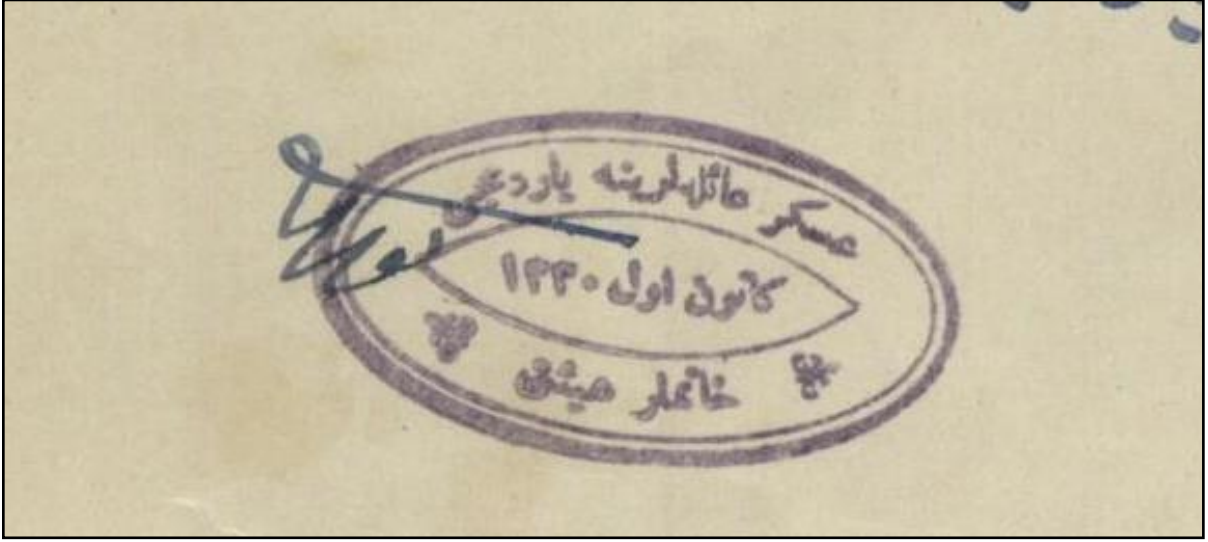 عسکر عائله‌لرینه یاردمجی
کانون اول ١٣٣٠
خانملر هیئتی